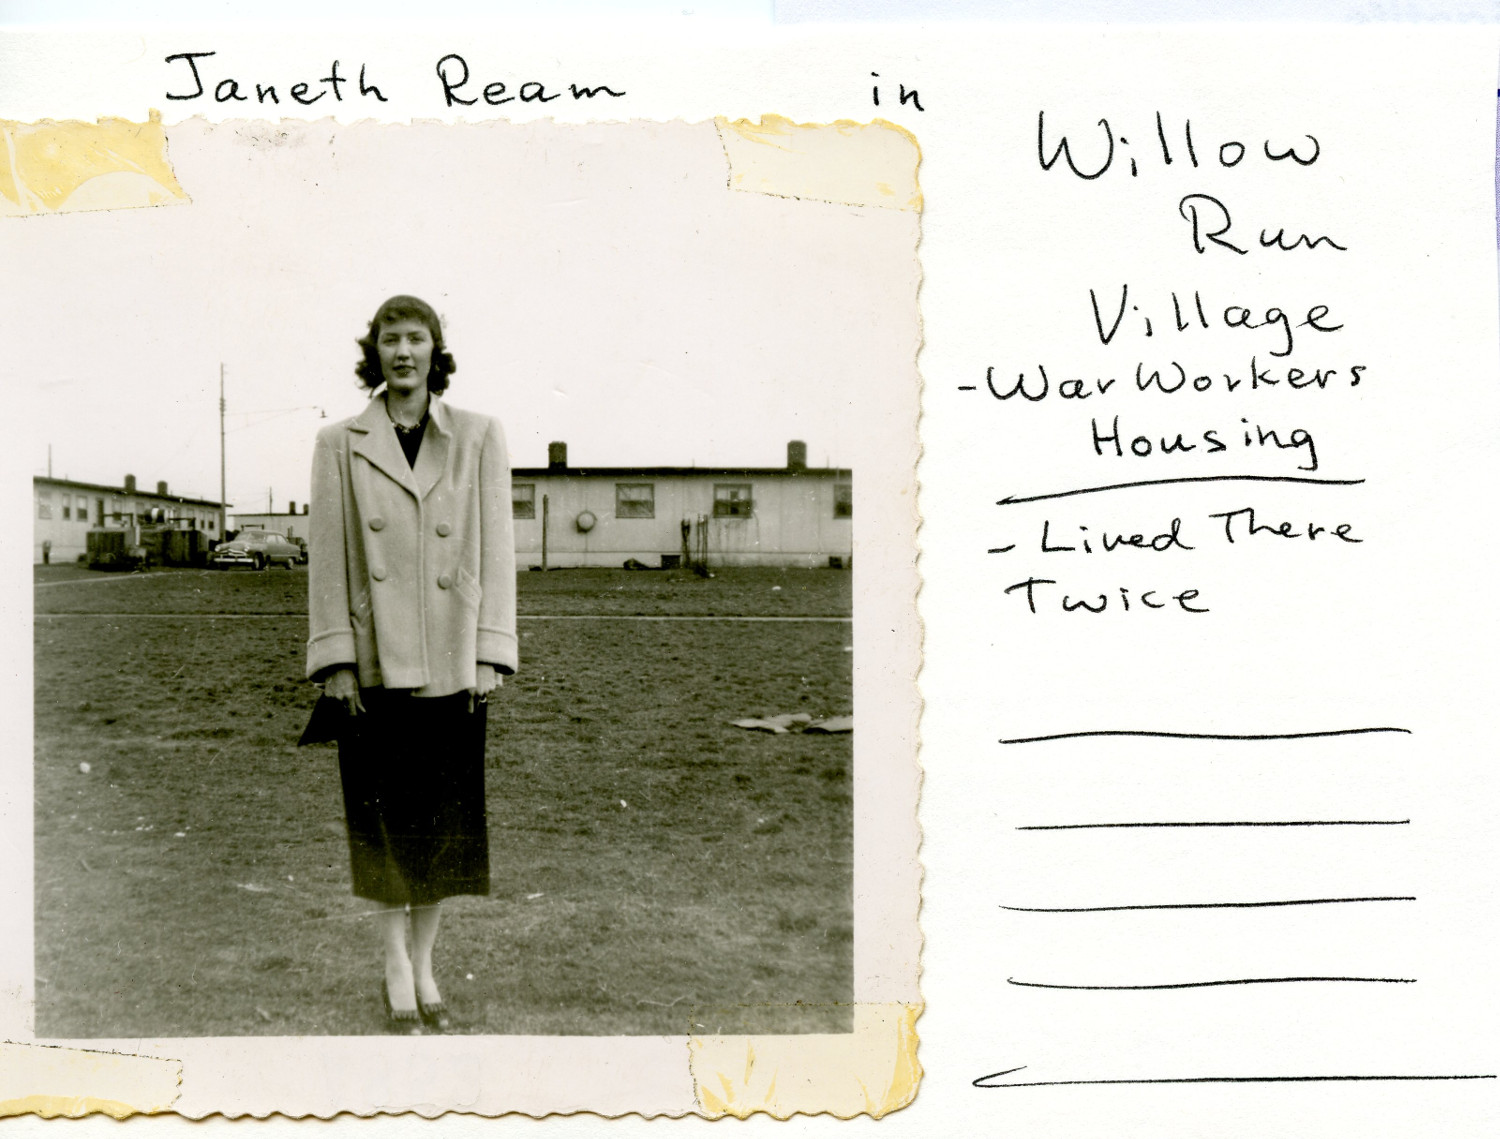 Janeth Ream in
Willow
Run
Village
- War Workers
Housing
- Lived There
Twice